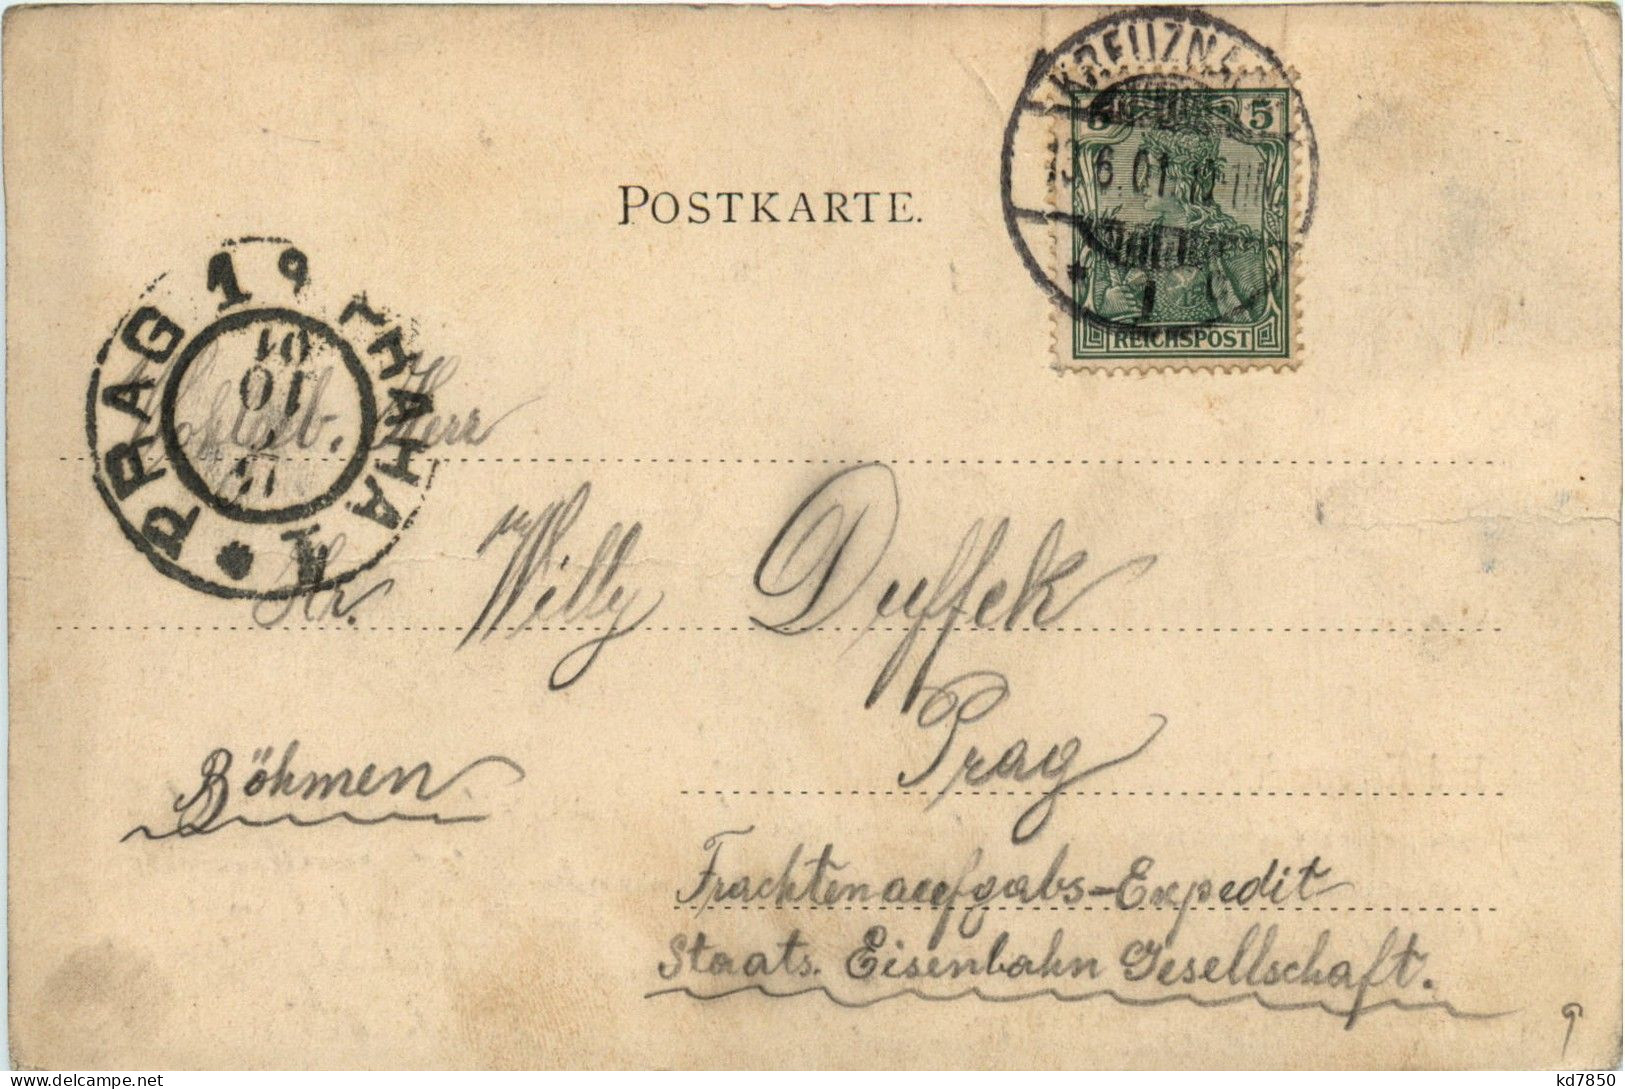 KREUZNACH
5 5
13.6.01.
REICHSPOST
1
POSTKARTE.
PRAG 1 PRAHA 1
01
10
Wohlgeb. Herr
Hr. Willy Duffek
Prag
Böhmen
Frachtenaufgabs-Expedit
Staats. Eisenbahn Gesellschaft.
kd7850